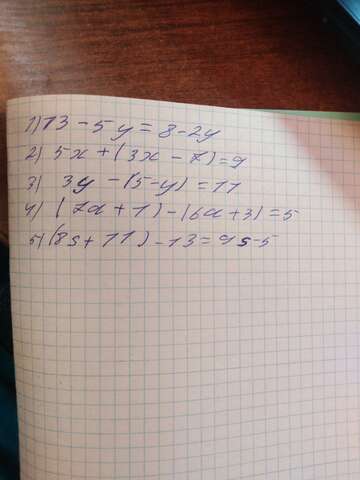 1) 13 - 5y = 8 - 2y
2) 5x + (3x - 7) = 9
3) 3y - (5 - y) = 11
4) (7a + 1) - (6a + 3) = 5
5) (8s + 11) - 13 = 9s - 5